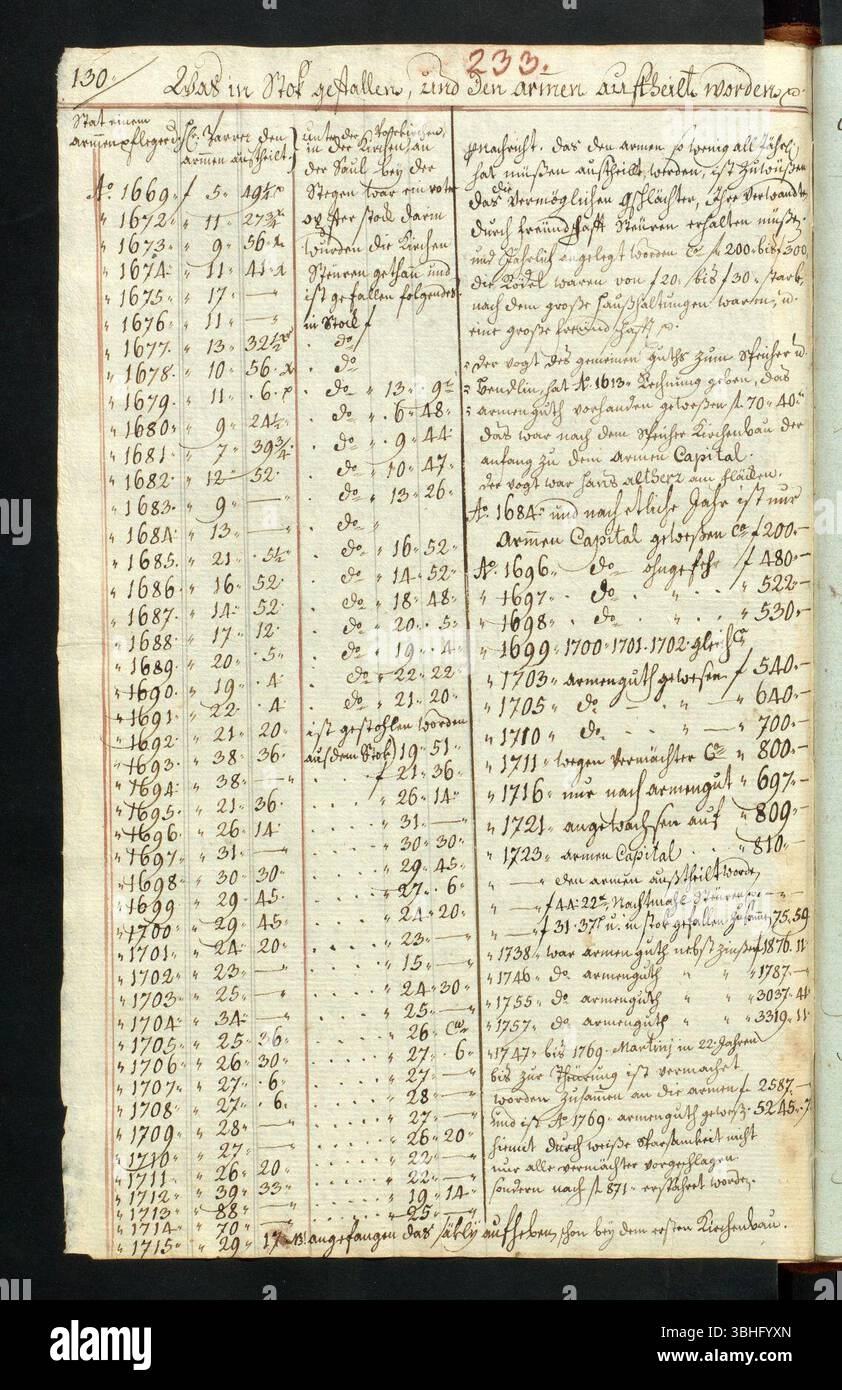 130.
233.
Was in Stok gefallen, und den armen austheilt worden
Stat einem
armenpfleger
Pfarrer den
armen austheilt.
unter der Vorkirchen,
in der Kirchen an
der Saul bey der
Stegen war ein roter
opfter stock darin
wurden die Kirchen
Steüren gethan und
ist gefallen folgendes
in Stok f
Ao. 1669 f 5 49½ x
" 1672 " 11 27¾
" 1673 " 9 56 x
" 1674 " 11 41 x
" 1675 " 17 —
" 1676 " 11 —
" 1677 " 13 32½ do
" 1678 " 10 56 x do
" 1679 " 11 6 do " 13 9
" 1680 " 9 24½ do " 6 48
" 1681 " 7 39¾ do " 9 44
" 1682 " 12 52 do " 10 47
" 1683 " 9 — do " 13 26
" 1684 " 13 — do "
" 1685 " 21 5½ do " 16 52
" 1686 " 16 52 do " 14 52
" 1687 " 14 52 do " 18 48
" 1688 " 17 12 do " 20 5
" 1689 " 20 5 do " 19 4
" 1690 " 19 4 do " 22 22
" 1691 " 22 4 do " 21 20
" 1692 " 21 20 ist gestohlen worden
" 1693 " 38 36 aus dem Stok) 19 51
" 1694 " 38 — f 21 36
" 1695 " 21 36 " 26 14
" 1696 " 26 14 " 31 —
" 1697 " 31 — " 30 30
" 1698 " 30 30 " 29 45
" 1699 " 29 45 " 27 6
" 1700 " 29 45 " 24 20
" 1701 " 24 20 " 23 —
" 1702 " 23 — " 15 —
" 1703 " 25 — " 24 30
" 1704 " 34 — " 25 —
" 1705 " 25 36 " 26
" 1706 " 26 30 " 27 6
" 1707 " 27 6 " 27 —
" 1708 " 27 6 " 28 —
" 1709 " 28 — " 27 —
" 1710 " 27 — " 26 20
" 1711 " 26 20 " 22 —
" 1712 " 39 33 " 22 —
" 1713 " 88 — " 19 14
" 1714 " 70 — " 25 —
" 1715 " 29 17 angefangen das säkly aufheben, schon bey dem ersten Kirchenbau.
Nachricht. das den armen so wenig all Jährl:
hat müßen austheilt werden, ist zuwüßen
das die Vermöglichen Gschlächter, Ihre Verwandten
durch freündschafft Steüren erhalten müßen
und Jährlich angelegt worden Ca f 200 bis f 300,
die Rödel waren von f 20 bis f 30 stark,
nach dem große Haußhaltungen waren, u.
eine große freündschafft
der vogt des gemeinen guths zum Speicher u.
Vendlin, hat Ao. 1613 Rechnung geben, das
armenguth vorhanden geweßen f. 70 40
das war nach dem Speicher Kirchenbau der
anfang zu dem armen Capital.
der vogt war Hans altherz am fläken.
Ao. 1684 und nach etliche Jahr ist nur
armen Capital geweßen Ca f 200 —
Ao. 1696 do ohngefehr f 480 —
" 1697 do " " 522 —
" 1698 do " " 530 —
" 1699 1700 1701 1702 gleich
" 1703 armenguth gewesen f 540 —
" 1705 do — " — " 640 —
" 1710 do — " 700 —
" 1711 wegen Vermächter Ca " 800 —
" 1716 nur nach armengut " 697 —
" 1721 angewachsen auf " 809 —
" 1723 armen Capital " 810 —
" — " den armen außtheilt worde,
" — " f 44 22 Nachtmahl Steüren
" — f 31 37 u. in stok gefallen Zusamen 75 59
" 1738 war armenguth nebst zinßen f 1876 11
" 1746 do armenguth " " 1787 —
" 1755 do armenguth " " 3037 44
" 1757 do armenguth " " 3319 11
" 1747 bis 1769 Martinj in 22 Jahren
bis zur Theürung ist vermachet
worden zusamen an die armen f 2587 —
und ist Ao 1769 armenguth geweß. 5245 7
hiemit durch weiße Sparsamkeit nicht
nur alle vermächter vorgeschlagen
sondern nach f 871 erspahret worden.
alamy
Image ID: 2BHFYXN
www.alamy.com